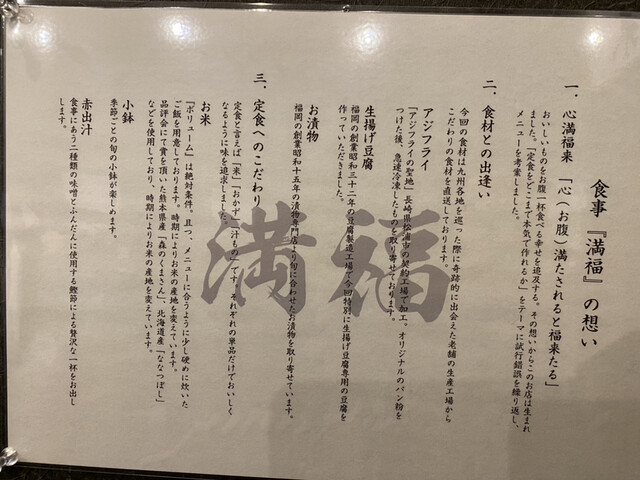 食事『満福』の想い
一、心満福来「心(お腹)満たされると福来たる」
おいしいものをお腹一杯食べる幸せを追及する。その想いからこのお店は生まれ
ました。「定食をどこまで本気で作れるか」をテーマに試行錯誤を繰り返し、
メニューを考案しました。
二、食材との出逢い
今回の食材は九州各地を巡った際に奇跡的に出会えた老舗の生産工場から
こだわりの食材を直送しております。
アジフライ
「アジフライの聖地」長崎県松浦市の契約工場で加工。オリジナルのパン粉を
つけた後、急速冷凍したものを取り寄せております。
生揚げ豆腐
福岡の創業昭和三十二年の豆腐製造工場で今回特別に生揚げ豆腐専用の豆腐を
作っていただきました。
お漬物
福岡の創業昭和十五年の漬物専門店より旬に合わせたお漬物を取り寄せています。
三、定食へのこだわり
定食と言えば「米」「おかず」「汁もの」です。それぞれの単品だけでおいしく
なるように味を追求しました。
お米
『ボリューム』は絶対条件。且つ、メニューに合うように少し硬めに炊いた
ご飯を用意しております。時期によりお米の産地を変えています。
品評会にて賞を頂いた熊本県産「森のくまさん」、北海道産「ななつぼし」
などを使用しており、時期によりお米の産地を変えています。
小鉢
季節ごとの旬の小鉢が楽しめます。
赤出汁
食事にあう二種類の味噌とふんだんに使用する鰹節による贅沢な一杯をお出し
します。
満福